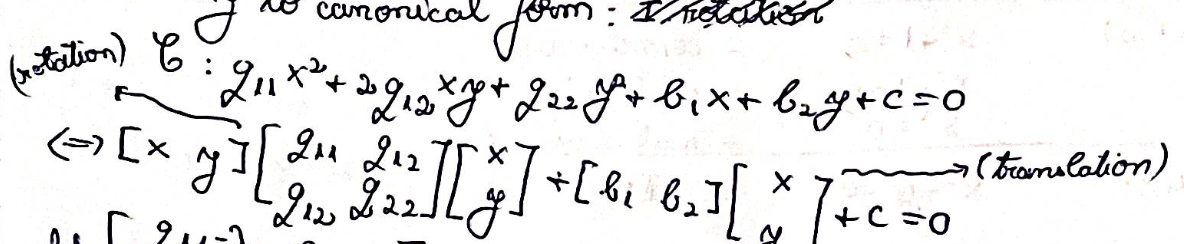 to canonical form:
(rotation) C : q₁₁x² + 2q₁₂xy + q₂₂y² + b₁x + b₂y + c = 0
<=> [x y] [q₁₁ q₁₂ q₁₂ q₂₂] [x y] + [b₁ b₂] [x y] + c = 0 → (translation)